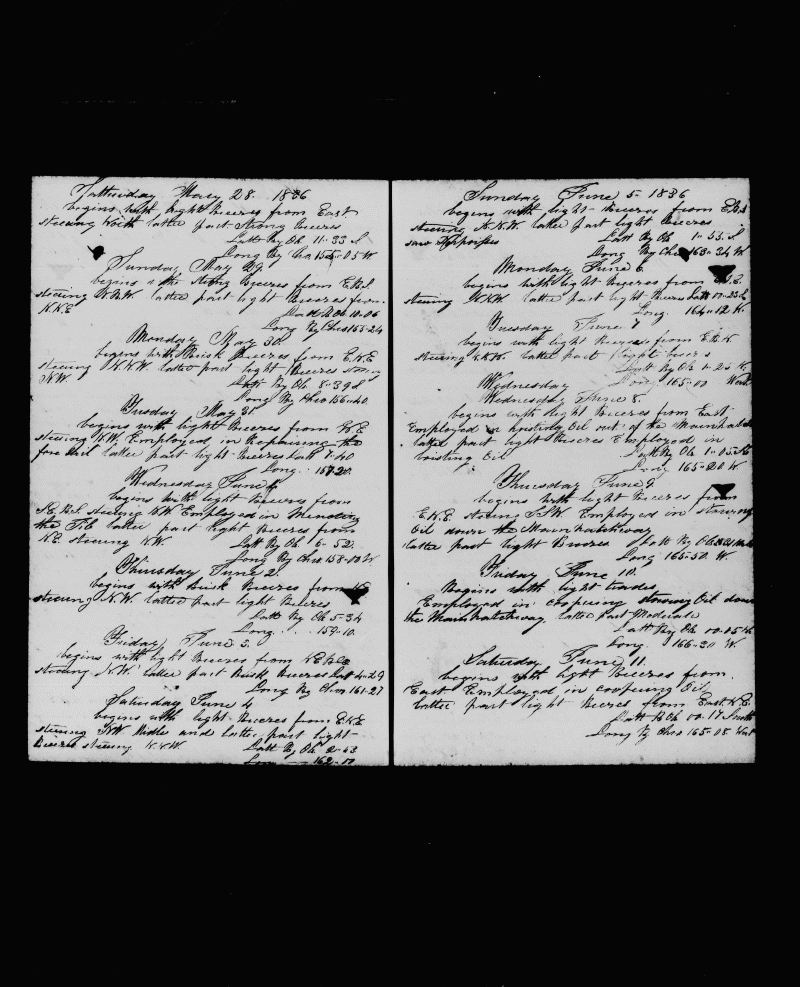 Satturday May 28. 1836
begins with light Breezes from East
steering North latter part strong Breezes
Latt By Ob 11-33 S
Long By Chro 155-05 W
Sunday May 29.
begins with strong Breezes from E.B.S
steering N.B.W. latter part light Breezes from
N.N.E
Latt By Ob 10-06
Long By Chro 155-24
Monday May 30
begins with Brisk Breezes from E.N.E
steering N.N.W. latter part light Breezes
N.W.
Latt By Ob 8-39 S
Long By Chro 156-40
Tuesday May 31
begins with light Breezes from N.E
steering N.W. Employed in Repairing the
fore Sail latter part light Breezes Latt 7-40
Long. 157-20
Wednesday June 1
begins with light Breezes from
N.E.B.E steering N.W Employed in Mending
the Jib latter part light Breezes from
N.E. steering N.W.
Latt By Ob 6-52
Long By Chro 158-00 W
Thursday June 2.
begins with Brisk Breezes from
steering N.W. latter part light Breezes
Latt By Ob 5-34
Long. 159-10.
Friday June 3.
begins with light Breezes from
steering N.W latter part Brisk Breezes Lat 4-29
Long By Chro 161-27
Saturday June 4
begins with light Breezes from E.N.E
steering N.W Midle and latter part light
Breezes steering N.N.W.
Latt By Ob 2-43
Long 162-11
Sunday June 5- 1836
begins with light Breezes from E.B.S
steering N.N.W. latter part light Breezes
saw
Latt By Ob 1-55 S
Long By Chro 163-34 W
Monday June 6.
begins with light Breezes from
steering N.N.W latter part light Breezes Latt
Long. 164-12 W.
Tuesday June 7
begins with light Breezes from E.B.N
steering N.N.W. latter part light breezes
Latt By Ob 1-25 N.
Long 165-00 West
Wednesday
Wednesday June 8.
begins with light Breezes from East
Employed in hoisting Oil out of the Mainhatch
latter part light Breezes Employed in
hoisting Oil
Latt By Ob 1-05 N
Long 165-20 W
Thursday June 9.
begins with light Breezes from
E.N.E. steering Employed in stowing
Oil down the Mainhatchway
latter part light Breezes Latt By Ob
Long 165-50. W.
Friday June 10.
Begins with light trades
Employed in coopering stowing Oil down
the Mainhatchway. latter part Moderate
Latt By Ob 00-05
Long. 166-30 W.
Saturday June 11.
begins with light Breezes from.
East Employed in coopering Oil
latter part light Breezes from East. N.E.
Latt B Ob 00-17 South
Long By Chro 165-08 West